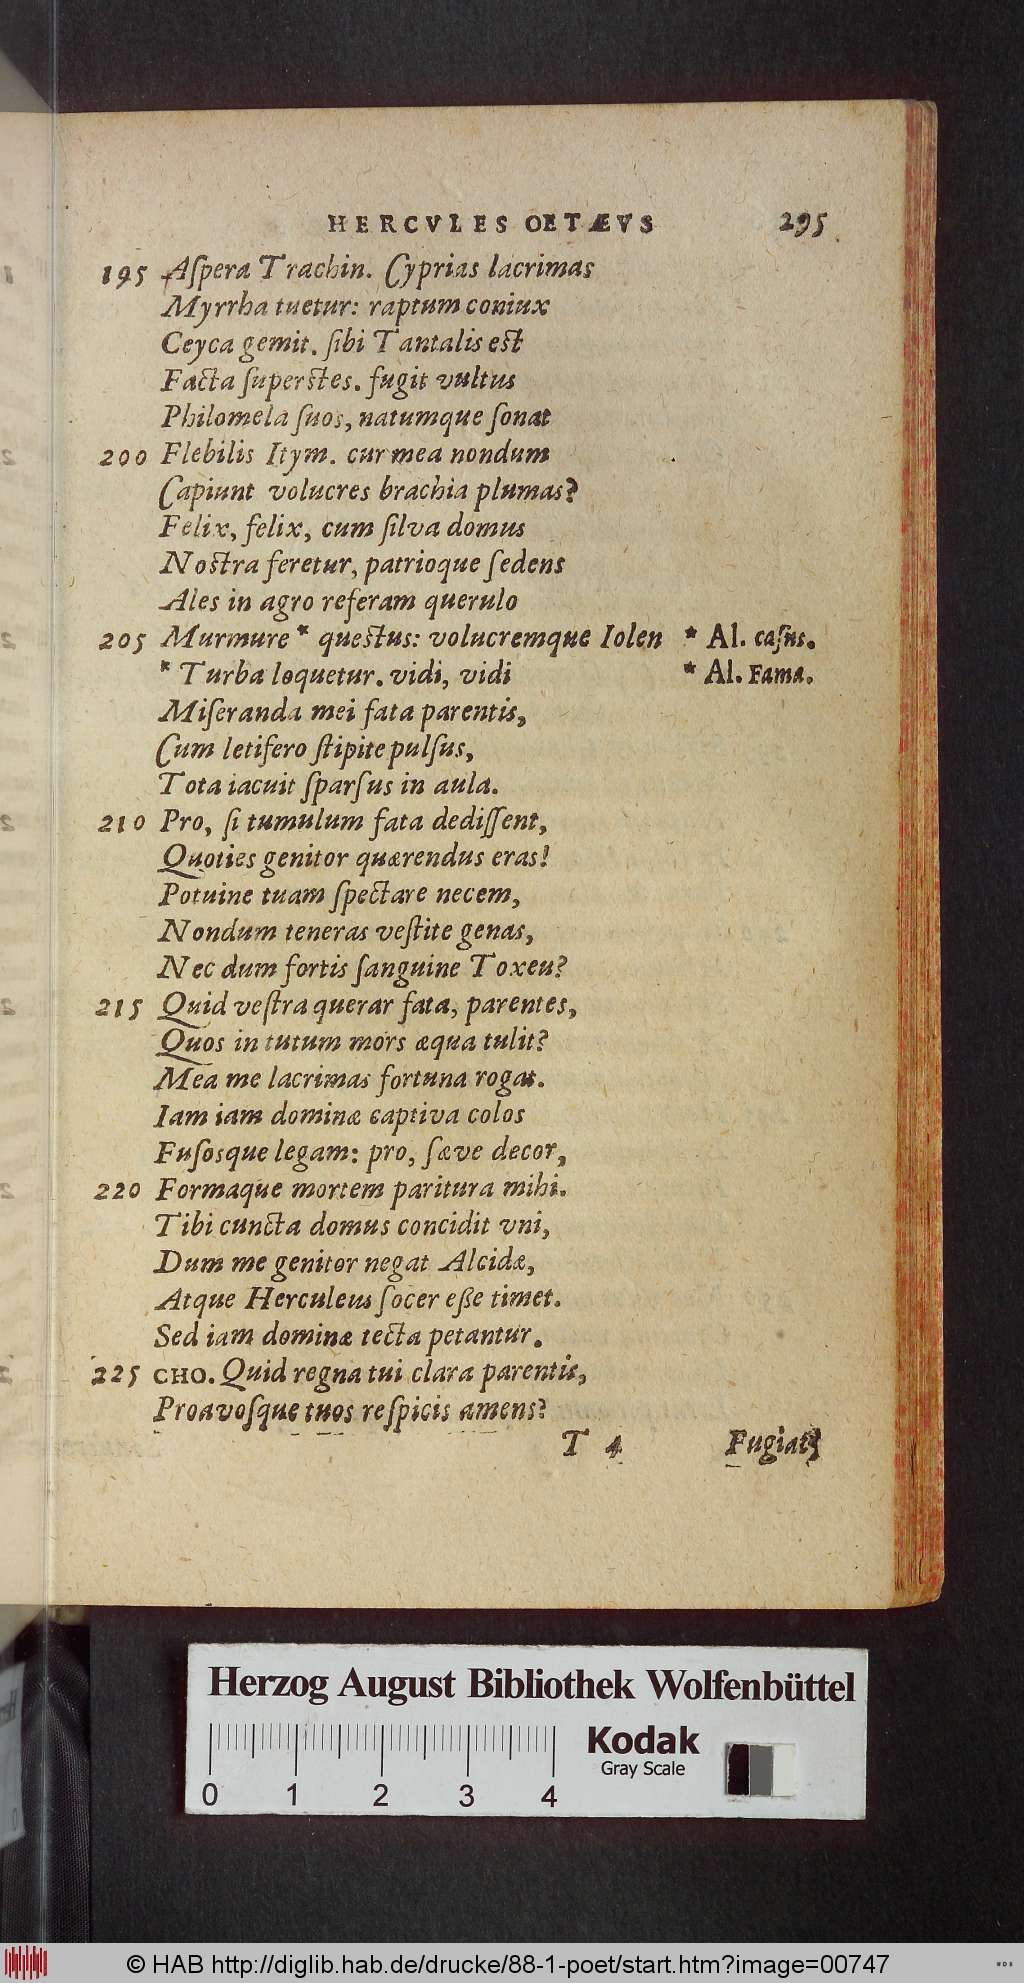 HERCVLES OETÆVS 295
195 Aſpera Trachin. Cyprias lacrimas
Myrrha tuetur: raptum coniux
Ceyca gemit. ſibi Tantalis est
Facta ſuperstes. fugit vultus
Philomela ſuos, natumque ſonat
200 Flebilis Itym. cur mea nondum
Capiunt volucres brachia plumas?
Felix, felix, cum ſilva domus
Nostra feretur, patrioque ſedens
Ales in agro referam querulo
205 Murmure * questus: volucremque Iolen * Al. caſus.
* Turba loquetur. vidi, vidi * Al. Fama.
Miſeranda mei fata parentis,
Cum letifero ſtipite pulſus,
Tota iacuit ſparſus in aula.
210 Pro, ſi tumulum fata dediſſent,
Quoties genitor quærendus eras!
Potuine tuam ſpectare necem,
Nondum teneras veſtite genas,
Nec dum fortis ſanguine Toxeu?
215 Quid veſtra querar fata, parentes,
Quos in tutum mors æqua tulit?
Mea me lacrimas fortuna rogat.
Iam iam dominæ captiva colos
Fuſosque legam: pro, ſæve decor,
220 Formaque mortem paritura mihi.
Tibi cuncta domus concidit vni,
Dum me genitor negat Alcidæ,
Atque Herculeus ſocer eße timet.
Sed iam dominæ tecta petantur.
225 CHO. Quid regna tui clara parentis,
Proavoſque tuos reſpicis amens?
T 4 Fugiat
Herzog August Bibliothek Wolfenbüttel
Kodak
Gray Scale
0 1 2 3 4
© HAB http://diglib.hab.de/drucke/88-1-poet/start.htm?image=00747